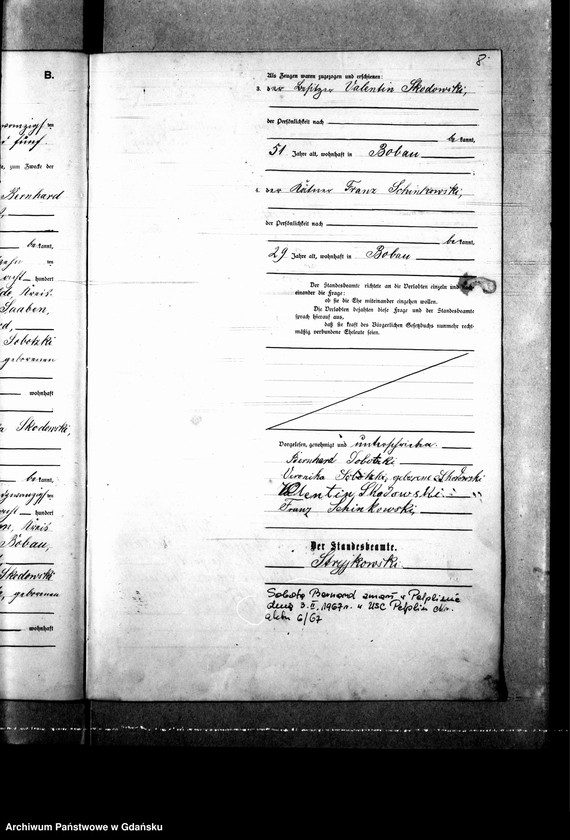 B.
Bernhard
be kannt,
hundert
Saaben,
Sobotzki
geborenen
wohnhaft
Skodowski,
be kannt,
hundert
Bobau,
Skodowski
geborenen
wohnhaft
8.
Als Zeugen waren zugezogen und erschienen:
3. der Besitzer Valentin Skodowski,
der Persönlichkeit nach
be kannt,
51 Jahre alt, wohnhaft in Bobau
4. der Kätner Franz Schinkowski,
der Persönlichkeit nach
be kannt,
29 Jahre alt, wohnhaft in Bobau
Der Standesbeamte richtete an die Verlobten einzeln und nach
einander die Frage:
ob sie die Ehe miteinander eingehen wollen.
Die Verlobten bejahten diese Frage und der Standesbeamte
sprach hierauf aus,
daß sie kraft des Bürgerlichen Gesetzbuchs nunmehr recht-
mäßig verbundene Eheleute seien.
Vorgelesen, genehmigt und unterschrieben.
Bernhard Sobotzki
Veronika Sobotzki, geborene Skodowski
Valentin Skodowski
Franz Schinkowski
Der Standesbeamte.
Stryjkowski
Sobotę Bernard zmarł w Pelplinie
dnia 3.II.1967r. w USC Pelplin nr.
aktu 6/67
Archiwum Państwowe w Gdańsku